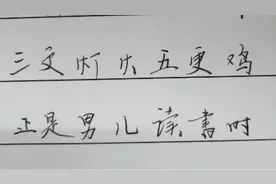 三更灯火五更鸡
正是男儿读书时